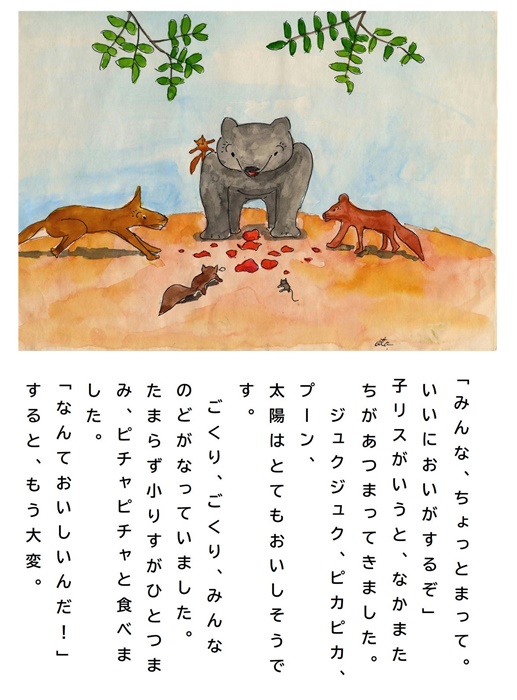 「みんな、ちょっとまって。
いいにおいがするぞ」
子リスがいうと、なかまた
ちがあつまってきました。
ジュクジュク、ピカピカ、
プーン、
太陽はとてもおいしそうで
す。
ごくり、ごくり、みんな
のどがなっていました。
たまらず小りすがひとつま
み、ピチャピチャと食べま
した。
「なんておいしいんだ！」
すると、もう大変。